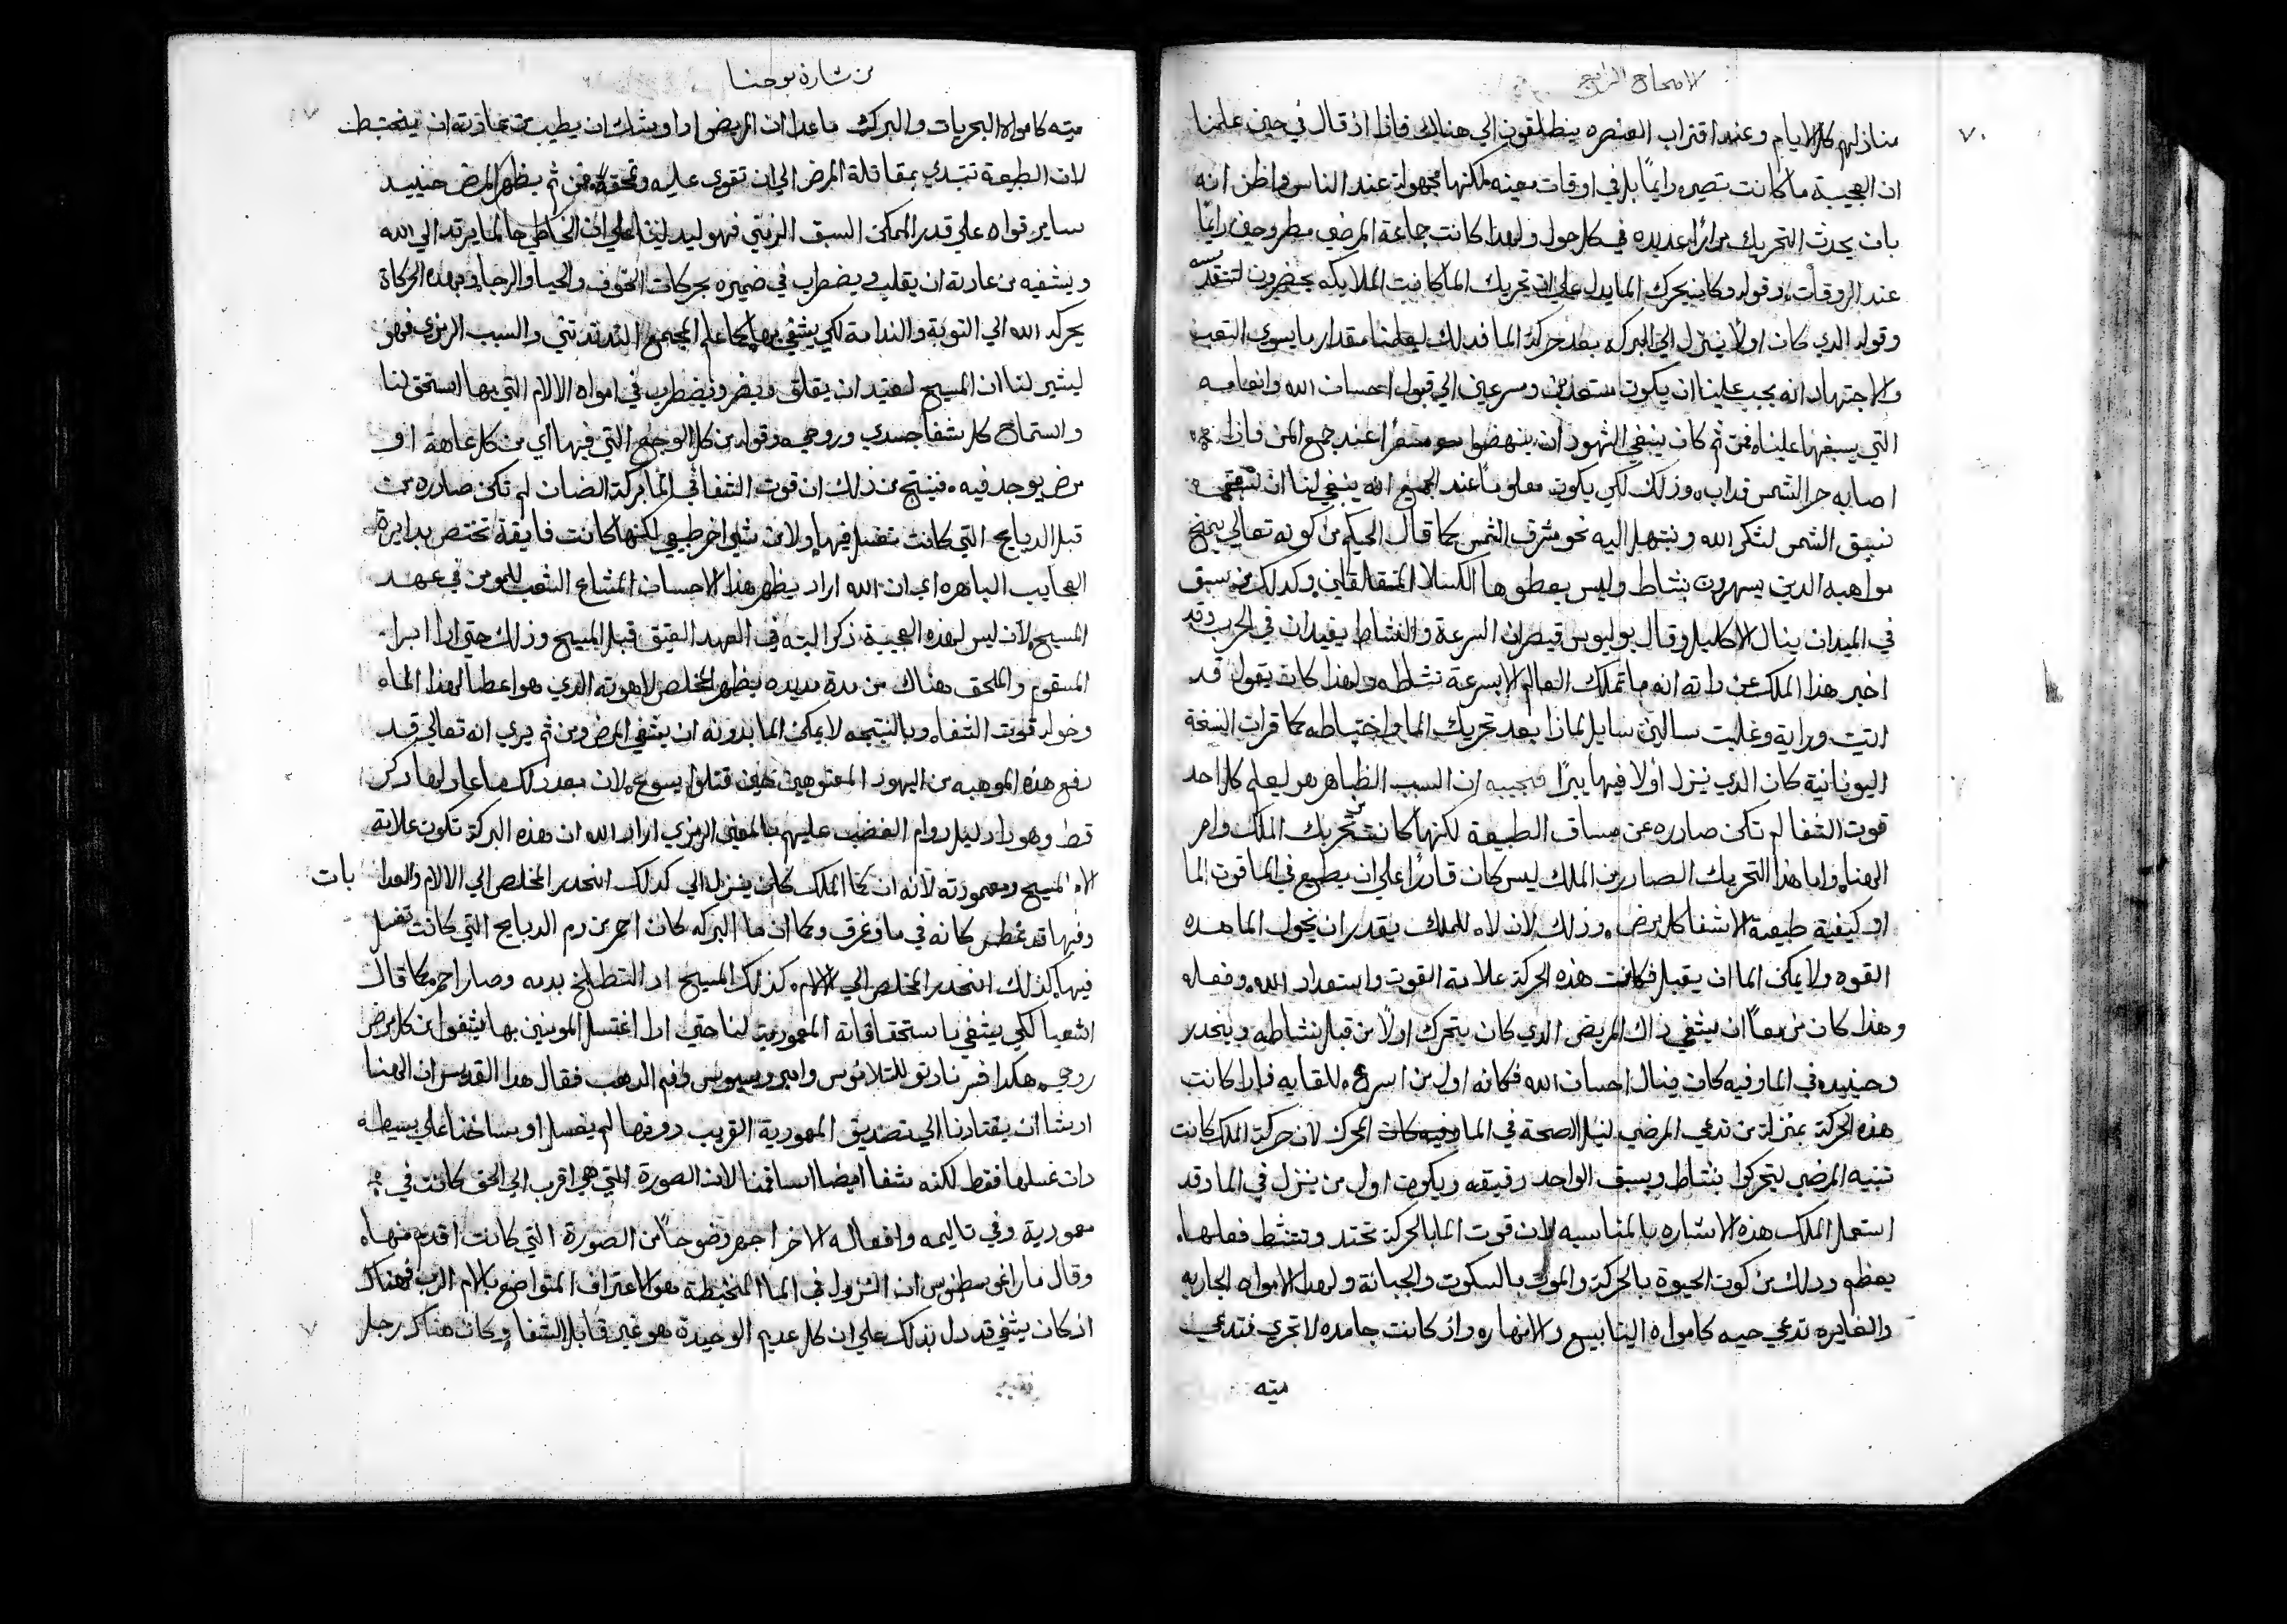 الاصحاح الرابع
٧٠
منازلهم كل الايام وعند اقتراب العنصره ينطلقون الي هنالك فاذا اذ قال في حين علمنا
ان العجيبة ما كانت تصير دايمًا بل في اوقات معينه لكنها مجهولة عند الناس واظن انه
بان يحدث التحريك مرارًا عديده في كل حول ولهذا كانت جماعة المرضي مطروحين دايمًا
عند الروقات وقوله وكان يحرك الما يدل علي ان تحريك الما كانت الملايكه يحضرون
وقوله الدي كان اولًا ينزل الي البركه بعد حركة الما فدلك ليعلمنا مقدار ما يسوي التعب
والاجتهاد انه يجب علينا ان يكون مستعدين ومسرعين الي قبول احسان الله وانعامه
التي يسبغها علينا فمن ثم كان ينبغي اليهود ان ينهضوا عند جمع المن فاذا
اصابه حر الشمس فداب وذلك لكي يكون معلومًا عند الجميع انه ينبغي لنا ان
نسبق الشمس لشكر الله ونبتهل اليه نحو مشرق الشمس كما قال الحكيم من كونه تعالي يمنح
مواهبه الدين يسهرون بنشاط وليس يعطوها الكسلا وكدلك من سبق
في الميدان ينال الاكليل وقال يوليوس قيصر ان السرعة والنشاط يفيدان في الحرب وقد
اخبر هذا الملك عن داته انه ما تملك العالم الا بسرعة نشاطه ولهذا كان يقول قد
اتيت ورايت وغلبت سالتين سايل لماذا بعد تحريك الما واختباطه كما قرات النسخة
اليونانية كان الدي ينزل اولا فيها يبرا فنجيبه ان السبب الظاهر هو ليعلم كل احد
قوت الشفا لم تكن صادره عن مساق الطبيعة لكنها كانت من تحريك الملك وامر
الهنا واما هذا التحريك الصادر من الملك ليس كان قادرًا علي ان يطبع في الما قوت الما
او كيفية طبيعة لاشفا كل مرض وذلك لان لا للملك يقدر ان يخول الما هده
القوه ولا يمكن الما ان يقبل فكانت هذه الحركة علامة القوت واستعداد الله وفعله
وهذا كان مزمعًا ان يشفي داك المريض الدي كان يتحرك اولًا من قبل نشاطه وينحدر
وحنيده في الما وفيه كان ينال احسان الله فكانه اول من اسرع للقايه فادا كانت
هذه الحركة بمنزلة من تدعي المرضي لنيل الصحة في الما وفيه كان المحرك لان حركة الملك كانت
تنبيه المرضي ليتحركوا بنشاط ويسبق الواحد رفيقه ويكون اول من ينزل في الما وقد
استعمل الملك هذه الاشاره بالمناسبه لان قوت الما بالحركة تحتد وتنشط فعلها
يعظم ودلك من كون الحيوة بالحركة والموت بالسكوت والجبانة ولهدا الامواه الجاريه
والغايره تدعي حيه كامواه الينابيع والانهاره واذ كانت جامده لا تجري فتدعي
ميته
من بشارة يوحنا
ميته كامواه البحريات والبرك ماعدا ان المريض ادا اوشك ان يطيب من عادته ان يختبط
لان الطبيعة تبتدي بمقاتلة المرض الي ان تقوي عليه فمن ثم يظهر المرض حنييد
ساير قواه علي قدر الممكن السبب الرمزي فهو ليدلنا علي ان الخاطي حالما يرتد الي الله
ويشفيه من عادته ان يقلب ويضطرب في ضميره بحركات الخوف والحيا والرجا وبهده الحركاة
يحركه الله الي التوبة والندامة لكي يشفي بها كما علم المجمع التريدنتيني والسبب الرمزي فهو
ليشير لنا ان المسيح لعتيد ان يقلق ويضر ويضطرب في امواه الالام التي بها استحق لنا
واستماح كل شفا جسدي وروحي وقوله من كل الوجع التي فيها اي من كل عاهة او
مرض يوجد فيه فينتج من ذلك ان قوت الشفا في الما بركة الضان لم تكن صادره من
قبل الدبايح التي كانت تغسل فيها ولا من شي اخر طبيعي لكنها كانت فايقة تختص بدايرة
العجايب الباهره اي ان الله اراد يظهر هذا الاحسان المشاع الشعب المومن في عهد
المسيح لان ليس لهذه العجيبة ذكرا البته في العهد العتيق قبل المسيح وذلك حتي ادا ابرا
المسقوم والملحق هناك من مدة مديده يظهر المخلص لاهوته الدي هو اعطا لهذا الماء
وخوله قوت الشفاه وبالنتيجه لا يمكن الما بدونه ان يشفي المرض ومن ثم يري انه تعالي قد
رفع هذه الموهبه من اليهود المعتوهين حين قتلوا يسوع لان بعد دلك ما عاد لها دكر
قط وهو دا دليل دوام الغضب عليهم بالمعني الرمزي اراد الله ان هذه البركة تكون علامة
الام المسيح ومعموديته لانه ان كما الملك كان ينزل الي كدلك انحدر المخلص الي الالام والعدابات
وفيها قد غطس كانه في ما وغرق وكما ان ما البركه كان احمر من دم الدبايح التي كانت تغسل
فيها كذلك انحدر المخلص الي الالام كذلك المسيح اد التطلخ بدمه وصار احمر كما قال
اشعيا لكي يشفي باستحقاقاته المعمودية لنا حتي ادا اغتسل المومنين بها يشفوا من كل مرض
روحي هكدا فسر نادتو للتلانوس وامبروسيوس وفم الدهب فقال هدا القديس ان الهنا
ادشا ان يقتادنا الي تصديق المعمودية القريب دورها لم يغسل اوساخنا علي بسيطه
دات غسلها فقط لكنه شفا ايضا اسقامنا لان الصورة التي هي اقرب الي الحق كانت في
معمودية وفي تاليمه وافعاله الاخر اجهر وضوحًا من الصورة التي كانت اقدم منها
وقال مار اغوسطينوس ان النزول في الما المختبطة هو الاعتراف المتواضع بالام الرب فهناك
اذ كان يشفي قد دل بذلك علي ان كل عديم الوحيدة هو غير قابل الشفا وكان هناك رجل